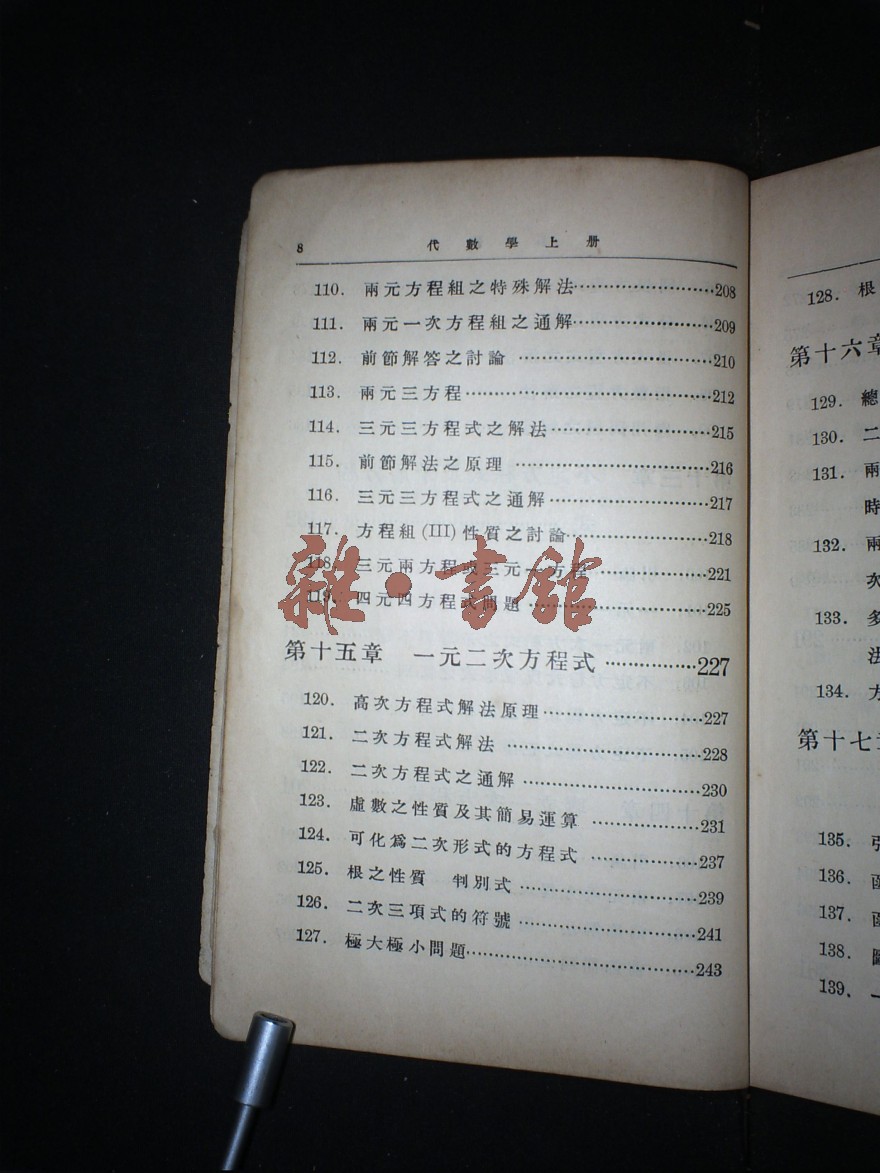 8 代數學上册
110. 兩元方程組之特殊解法 208
111. 兩元一次方程組之通解 209
112. 前節解答之討論 210
113. 兩元三方程 212
114. 三元三方程式之解法 215
115. 前節解法之原理 216
116. 三元三方程式之通解 217
117. 方程組(III)性質之討論 218
118. 三元兩方程或三元一方程 221
119. 四元四方程式問題 225
雜·書館
第十五章 一元二次方程式 227
120. 高次方程式解法原理 227
121. 二次方程式解法 228
122. 二次方程式之通解 230
123. 虛數之性質及其簡易運算 231
124. 可化爲二次形式的方程式 237
125. 根之性質 判別式 239
126. 二次三項式的符號 241
127. 極大極小問題 243
128. 根
第十六章
129. 總
130. 二
131. 兩
時
132. 兩
次
133. 多
法
134. 方
第十七
135.
136. 函
137. 函
138.
139. 一